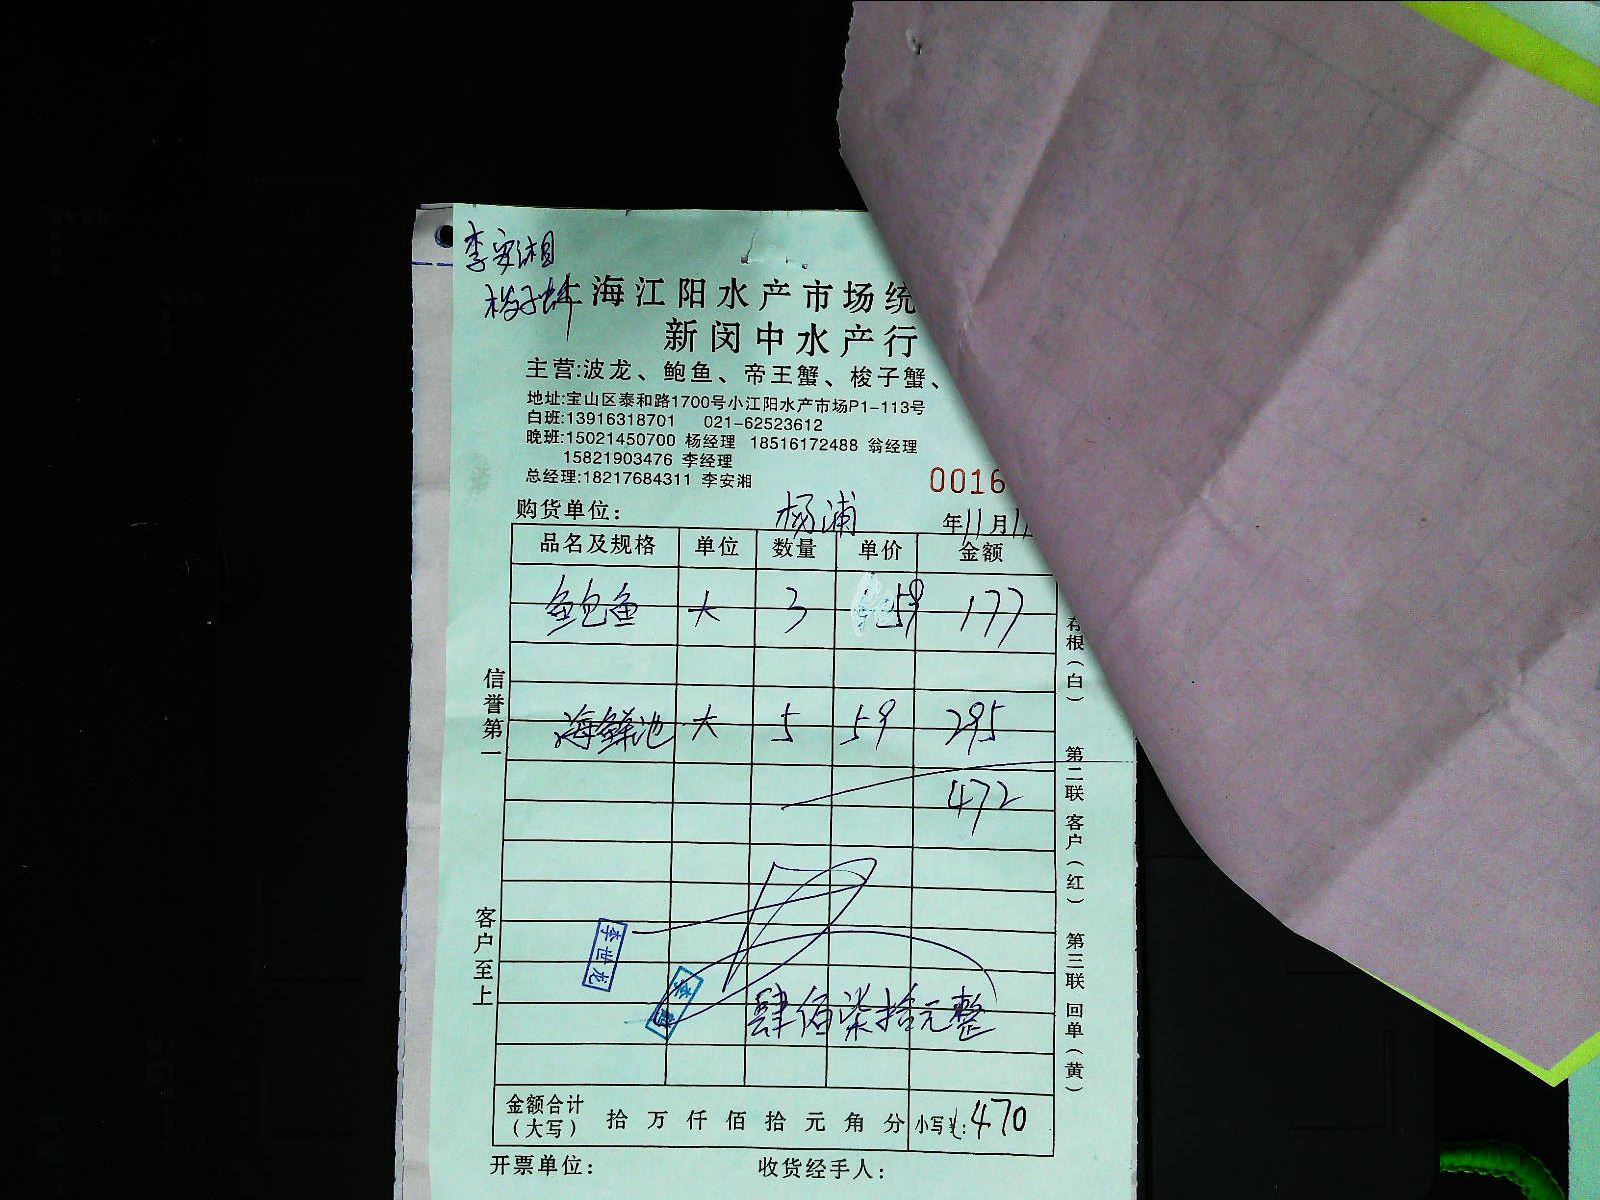 李安湘
梭子蟹
上海江阳水产市场统
新闵中水产行
主营:波龙、鲍鱼、帝王蟹、梭子蟹、
地址:宝山区泰和路1700号小江阳水产市场P1-113号
白班:13916318701 021-62523612
晚班:15021450700 杨经理 18516172488 翁经理
15821903476 李经理
总经理:18217684311 李安湘
0016
购货单位: 杨浦 年11月11
品名及规格 单位 数量 单价 金额
鲍鱼 大 3 59 177
海鲜池 大 5 59 295
472
肆佰柒拾元整
金额合计(大写) 拾 万 仟 佰 拾 元 角 分 小写¥:470
开票单位: 收货经手人:
信誉第一
客户至上
存根(白) 第二联 客户(红) 第三联 回单(黄)
李世龙